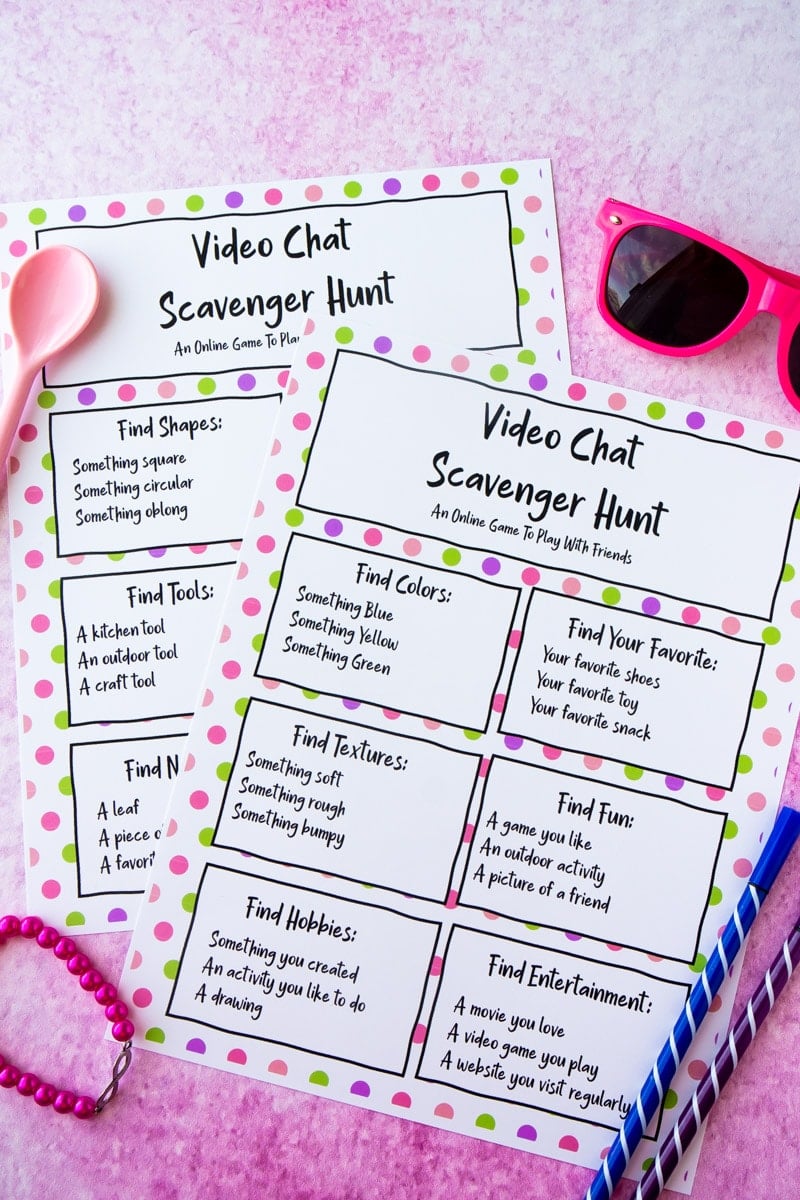 Video Chat
Scavenger Hunt
An Online Game To Play
Find Shapes:
Something square
Something circular
Something oblong
Find Tools:
A kitchen tool
An outdoor tool
A craft tool
Find
A leaf
A piece
A
Video Chat
Scavenger Hunt
An Online Game To Play With Friends
Find Colors:
Something Blue
Something Yellow
Something Green
Find Your Favorite:
Your favorite shoes
Your favorite toy
Your favorite snack
Find Textures:
Something soft
Something rough
Something bumpy
Find Fun:
A game you like
An outdoor activity
A picture of a friend
Find Hobbies:
Something you created
An activity you like to do
A drawing
Find Entertainment:
A movie you love
A video game you play
A website you visit regularly